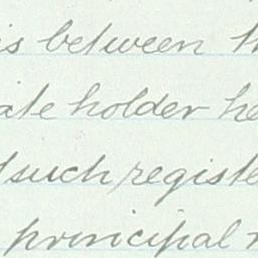 is between th
ate holder he
such registe
principal